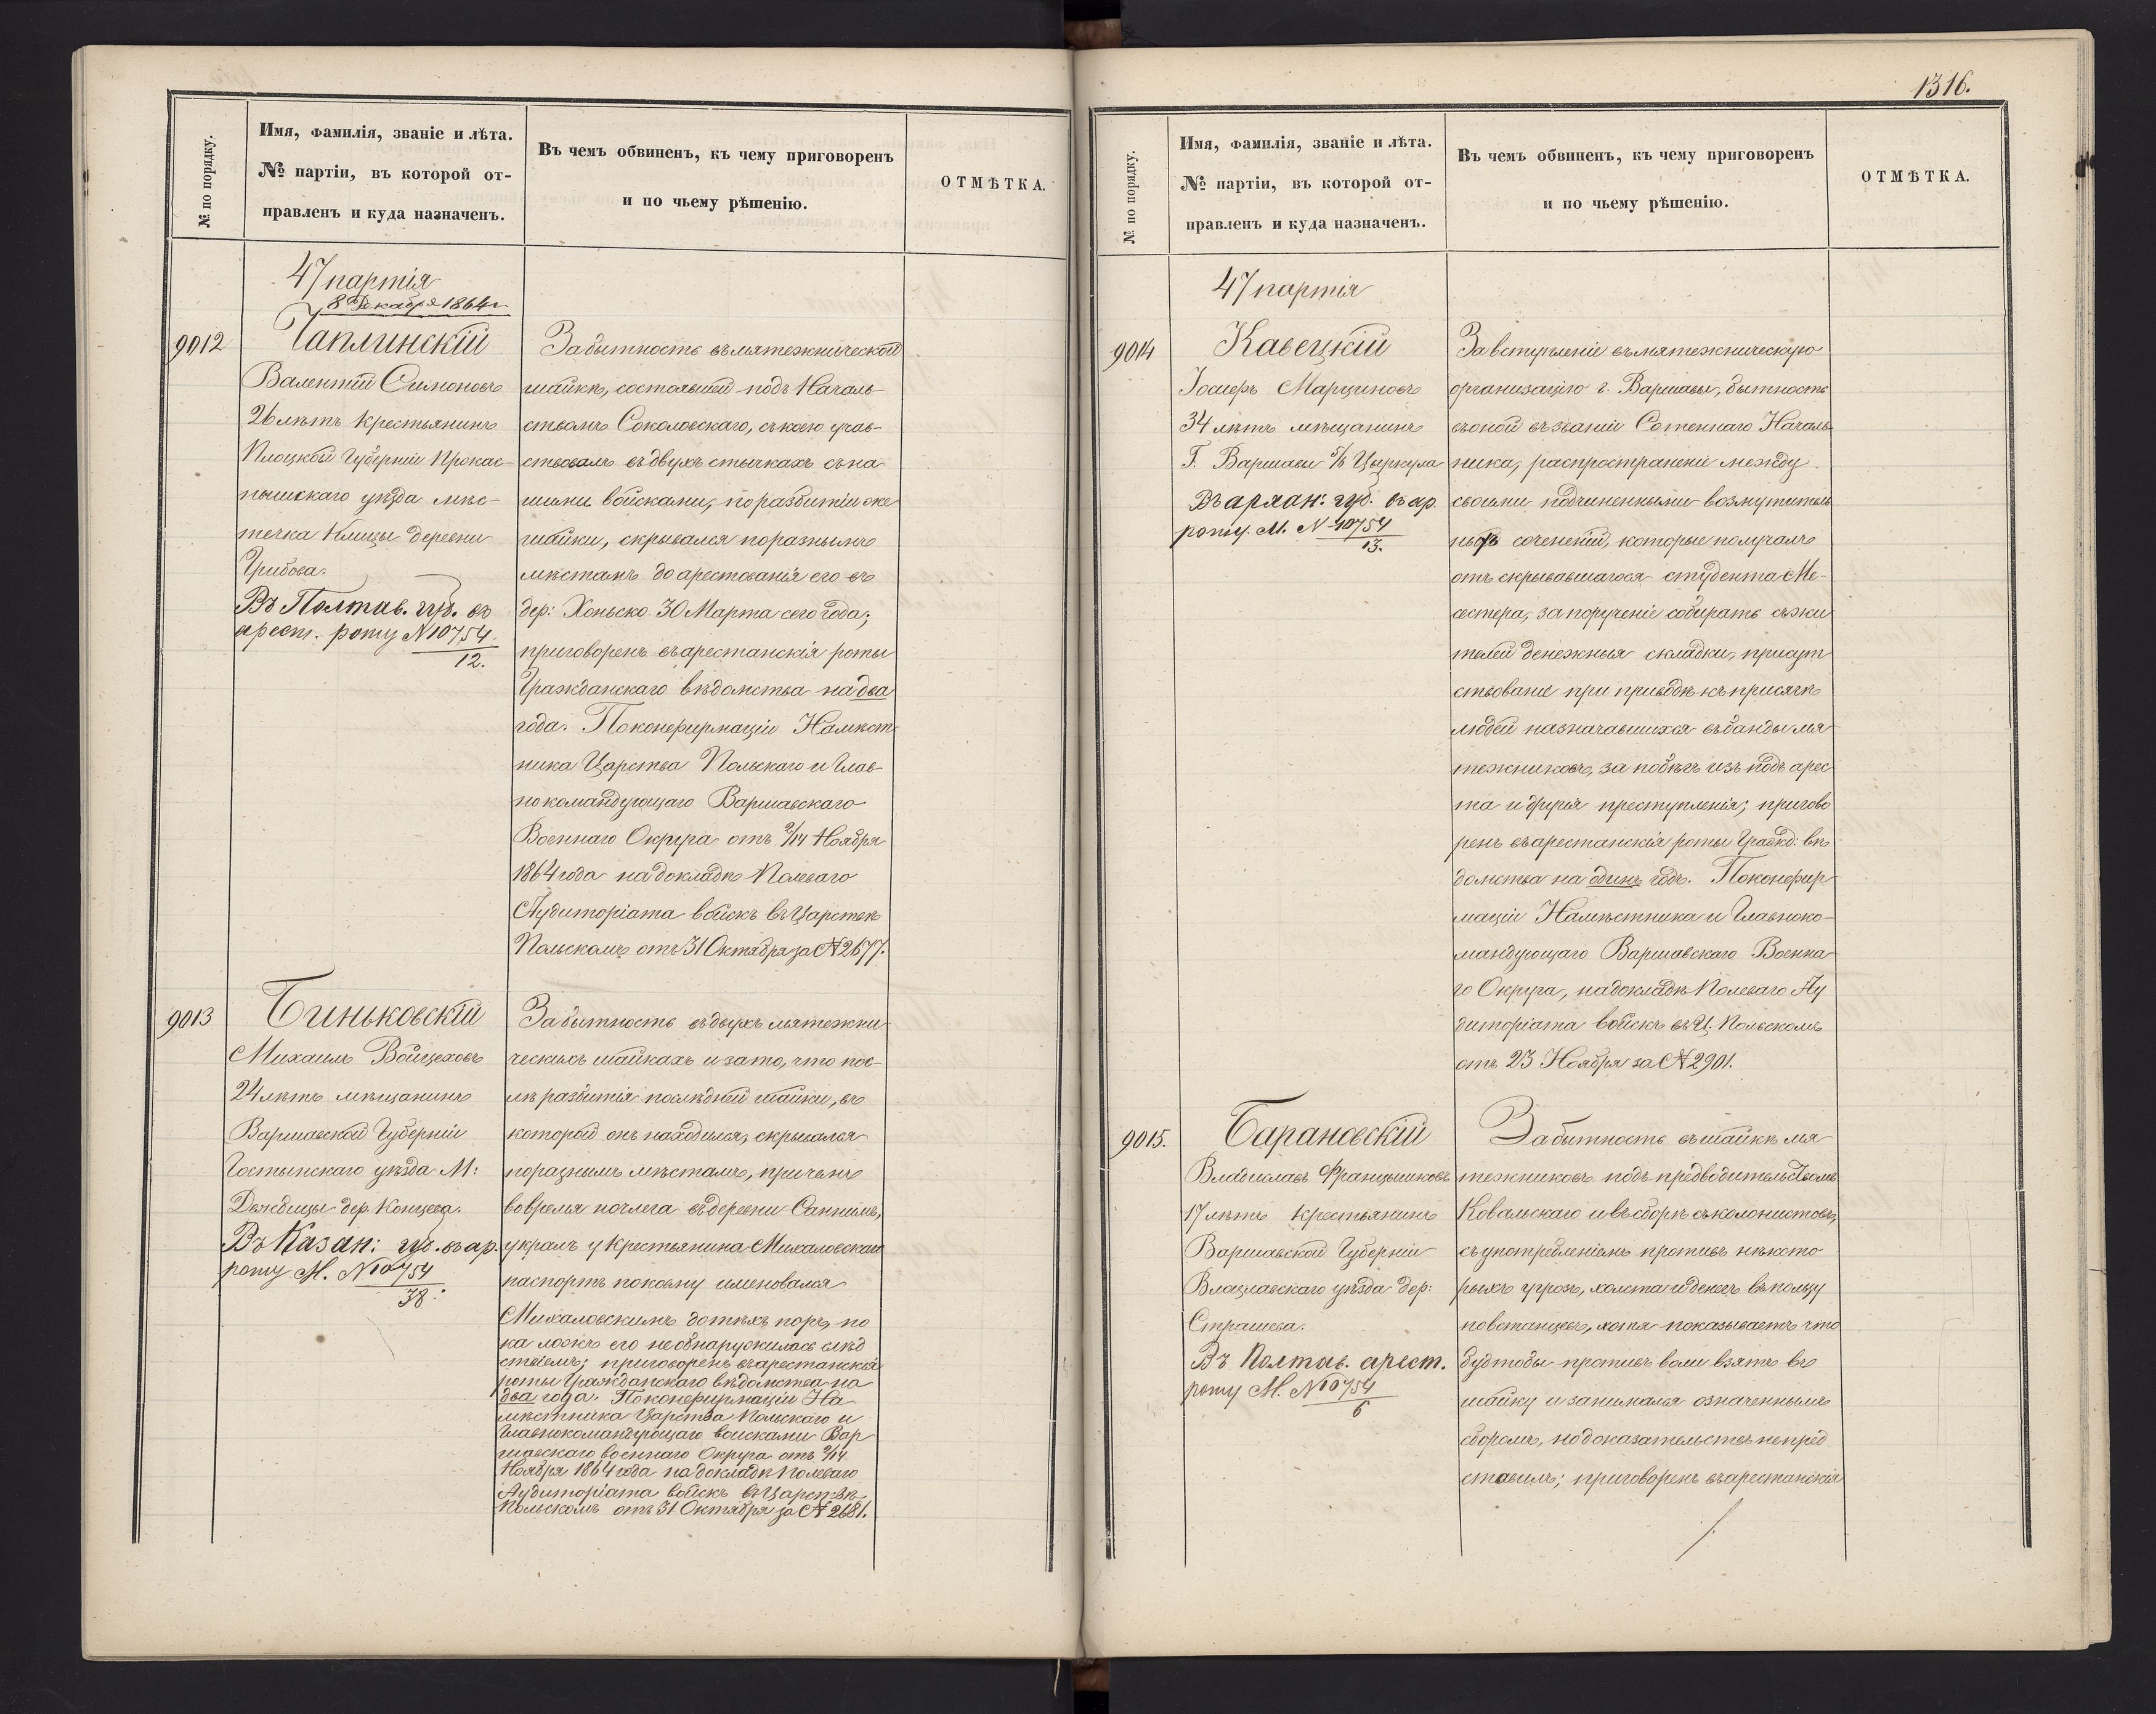 № по порядку.
Имя, фамилія, званіе и лѣта.
№ партіи, въ которой от-
правленъ и куда назначенъ.
Въ чемъ обвиненъ, къ чему приговоренъ
и по чьему рѣшенію.
ОТМѢТКА.
47 партія
8 Декабря 1864 г.
9012
Чаплинскій
Валентій Симоновъ
26 лѣтъ крестьянинъ
Плоцкой Губерніи Прокас-
нышскаго уѣзда мѣс-
течка Клицы деревни
Грибова.
Въ Полтав. губ. въ
арест. роту N 10754
12.
За бытность въ мятежнической
шайкѣ, состоявшей подъ Началь-
ствомъ Соколовскаго, съ коею учав-
ствовалъ въ двухъ стычкахъ съ на
шими войсками, по разбитіи же
шайки, скрывался по разнымъ
мѣстамъ до арестованія его въ
дер: Хоньско 30 Марта сего года;
приговоренъ въ арестанскія роты
Гражданскаго вѣдомства на два
года. По конфирмаціи Намѣст-
ника Царства Польскаго и Глав-
нокомандующаго Варшавскаго
Военнаго Округа отъ 2/14 Ноября
1864 года на докладѣ Полеваго
Аудиторіата войскъ въ Царствѣ
Польскомъ отъ 31 Октября за № 2677.
9013
Биньковскій
Михаилъ Войцеховъ
24 лѣтъ мѣщанинъ
Варшавской Губерніи
Гостынскаго уѣзда М:
дер. Концева.
Въ Казан: губ. въ ар.
роту М. N 10754
38.
За бытность въ двухъ мятежни-
ческихъ шайкахъ и за то, что пос-
лѣ разбитія послѣдней шайки, въ
которой онъ находился, скрывался
по разнымъ мѣстамъ, при чемъ
во время ночлега въ деревни Санникъ,
укралъ у Крестьянина Михаловскаго
паспортъ по коему именовался
Михаловскимъ до тѣхъ поръ, по
ка ложь его не обнаружилась слѣд
ствіемъ; приговоренъ въ арестанскія
роты Гражданскаго вѣдомства на
два года. По конфирмаціи На
мѣстника Царства Польскаго и
Главнокомандующаго войсками Вар
шавскаго военнаго Округа отъ 2/14
Ноября 1864 года на докладѣ Полеваго
Аудиторіата войскъ въ Царствѣ
Польскомъ отъ 31 Октября за № 2681.
1316.
№ по порядку.
Имя, фамилія, званіе и лѣта.
№ партіи, въ которой от-
правленъ и куда назначенъ.
Въ чемъ обвиненъ, къ чему приговоренъ
и по чьему рѣшенію.
ОТМѢТКА.
47 партія
9014
Кавецкій
Іосифъ Марциновъ
34 лѣтъ мѣщанинъ
Г. Варшавы 5/6 Циркула
губ. въ ар.
роту. М. N 10754
13.
За вступленіе въ мятежническую
организацію г. Варшавы, бытность
въ оной въ званіи Сотеннаго Началь-
ника, распространеніе между
своими подчиненными возмутитель
ныхъ сочененій, которые получалъ
отъ скрывавшагося студента Ме-
сстера, за порученіе собирать съ жи
телей денежныя складки, присут
ствованіе при приводѣ къ присягѣ
людей назначавшихся въ банды мя
тежниковъ, за побѣгъ изъ подъ арес
та и другія преступленія; пригово
ренъ въ арестанскія роты Гражд: вѣ
домства на одинъ годъ. По конфир
маціи Намѣстника и Главноко-
мандующаго Варшавскаго Военна
го Округа, на докладѣ Полеваго Ау
диторіата войскъ въ Ц. Польскомъ
отъ 23 Ноября за № 2901.
9015.
Барановскій
Владиславъ Францышковъ
17 лѣтъ крестьянинъ
Варшавской Губерніи
Влацлавскаго уѣзда дер:
Страшева.
Въ Полтав. арест.
роту М. N 10754
6
За бытность въ шайкѣ мя
тежниковъ подъ предводительствомъ
Ковальскаго и въ сборѣ съ колонистовъ,
съ употребленіемъ противъ нѣкото
рыхъ угрозъ, холста и денегъ въ пользу
повстанцевъ, хотя показываетъ что
будтобы противъ воли взятъ въ
шайку и занимался означеннымъ
сборомъ, но доказательствъ непред
ставилъ; приговоренъ въ арестанскія